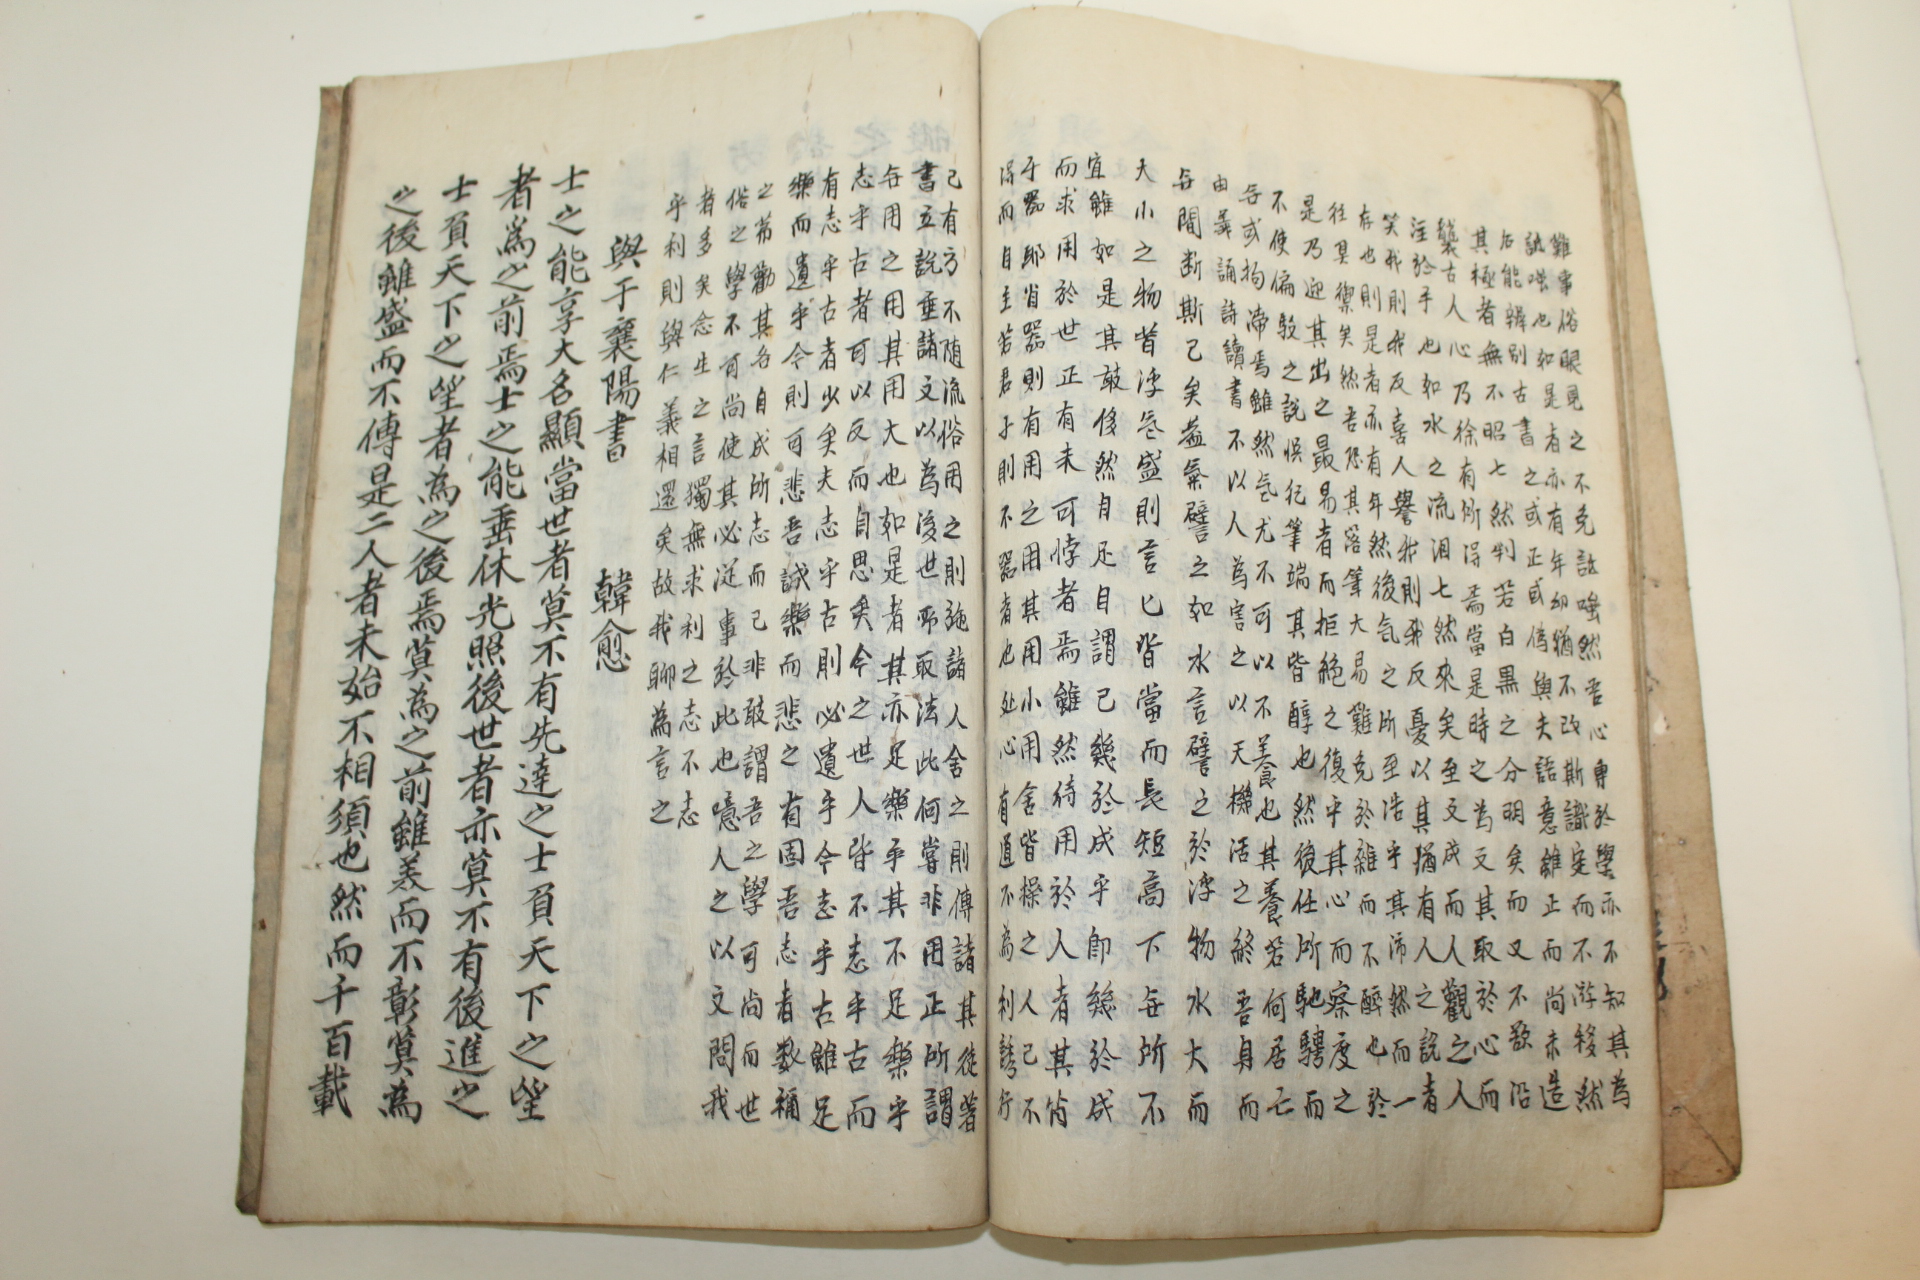 難事俗眼見之不免詆嗤然吾心專於學亦不知其為
詆嗤也如是者亦有年卻猶不改斯識定而不游移然
后能辨別古書之或正或偽與夫語意雖正而尚未造
其極者無不昭七然判若白黑之分明矣而又不欲沿
襲古人心乃徐有所得焉當是時之為文其取於心而
注於手也如水之流汨七然來矣至文成而人觀之人
笑我則我反喜人譽我則我反憂以其猶有人之說者
存也則是者亦有年然後气之所至浩乎其沛然而一
往莫禦矣然吾恐其落筆大易難免於雜而不醉也於
是乃迎其出之最易者而拒絕之復乎其心而察度之
不使偏駁之說悞犯筆端其皆醇也然後任所馳騁而
無或拘滯焉雖然气尤不可以不養也其養若何居仁
由義誦詩讀書不以人為害之以天機活之終吾身而
無間断斯已矣蓋氣譬之如水言譬之於浮物水大而
大小之物皆浮气盛則言之皆當而長短高下無所不
宜雖如是其敢侈然自足自謂己幾於成乎即幾於成
而求用於世正有未可悖者焉雖然待用於人者其肖
于器耶肖器則有用之用其用小用舍皆操之人己不
得而自主若君子則不器者也处心有道不為利誘行
己有方不随流俗用之則施諸人舍之則傳諸其徒著
書立說垂諸文以為後世所取法此何嘗非用正所謂
無用之用其用大也如是者其亦足樂乎其不足樂乎
志乎古者可以反而自思矣今之世人皆不志乎古而
有志乎古者少矣夫志乎古則必遺乎今志乎古雖足
樂而遺乎今則可悲吾誠樂而悲之有固吾志者数稱
之第勸其各自成所志而已非敢謂吾之學可尚而世
俗之學不可尚使其必從事於此也噫人之以文問我
者多矣念生之言獨無求利之志不志
乎利則與仁義相還矣故我聊為言之
與于襄陽書　　韓愈
士之能享大名顯當世者莫不有先達之士負天下之望
者為之前焉士之能垂休光照後世者亦莫不有後進之
士負天下之望者為之後焉莫為之前雖美而不彰莫為
之後雖盛而不傳是二人者未始不相須也然而千百載